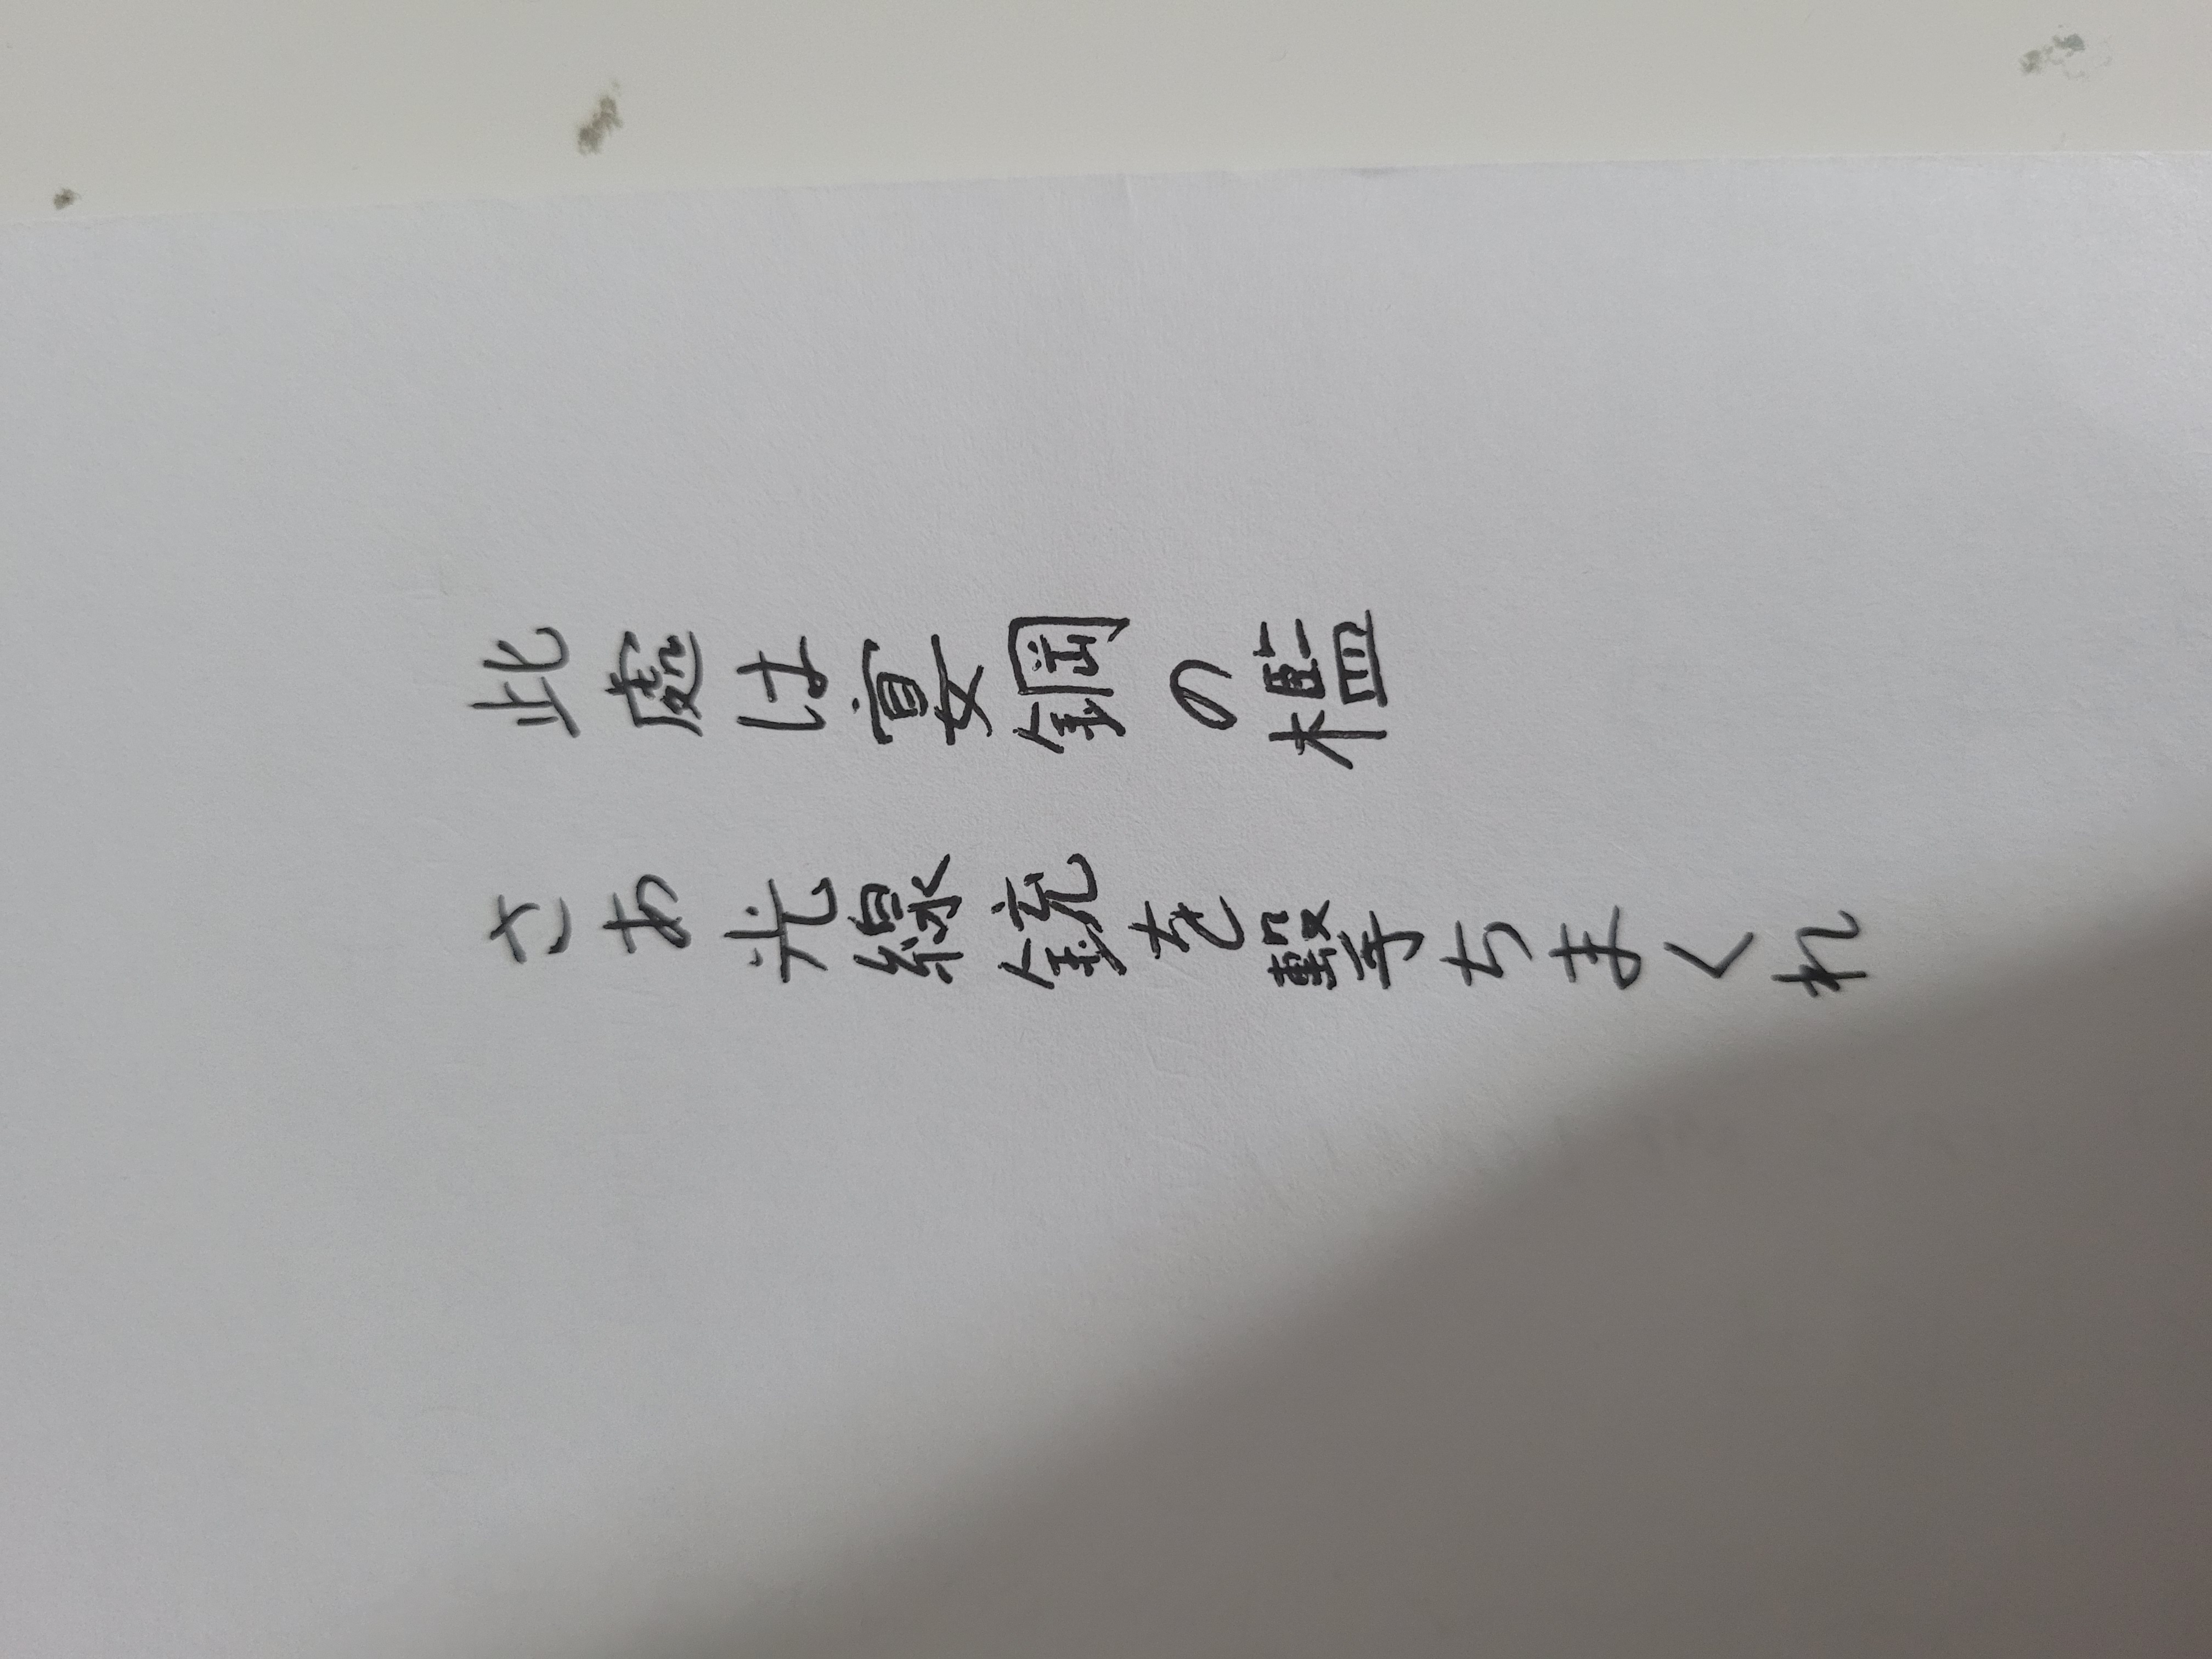 此處は宴鋼の檻
さあ光線銃を撃ちまくれ